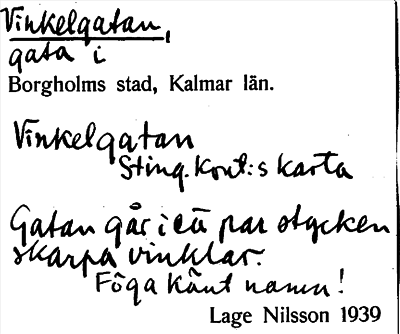 Vinkelgatan,
gata i
Borgholms stad, Kalmar län.
Vinkelgatan
Sting. kont:s karta
Gatan går i ett par stycken
skarpa vinklar.
Föga känt namn!
Lage Nilsson 1939